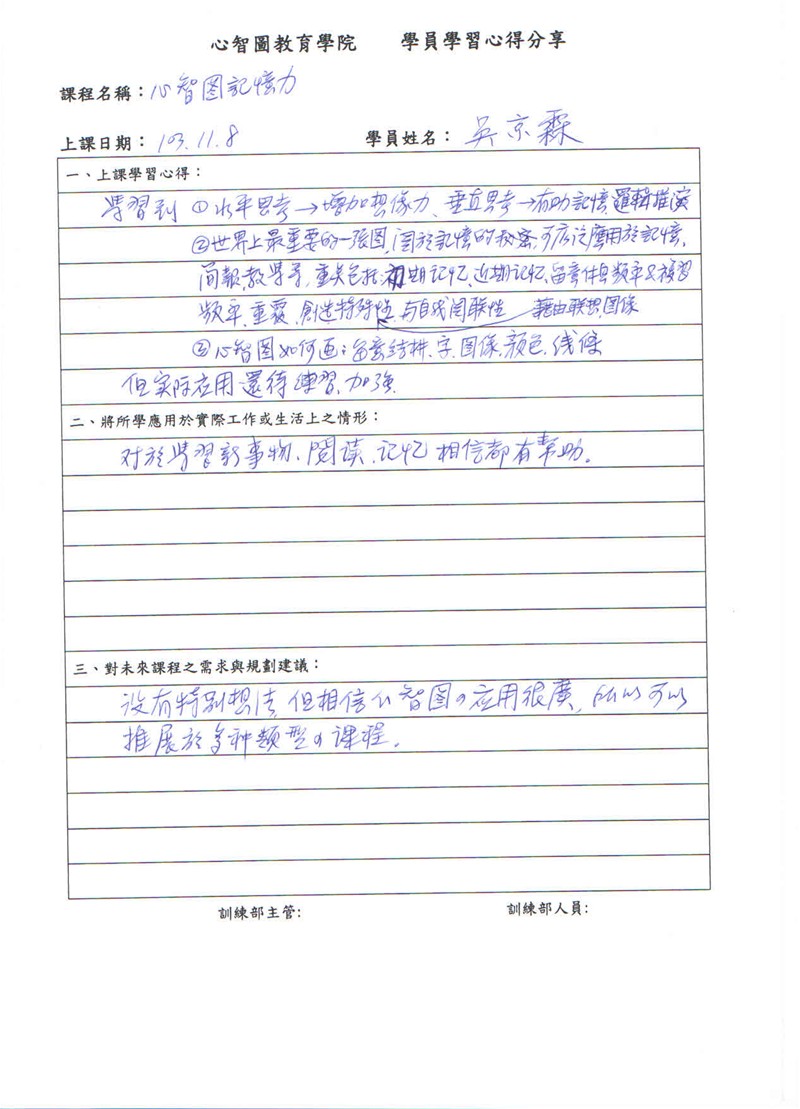 心智圖教育學院 學員學習心得分享
課程名稱：心智图記憶力
上課日期：103.11.8 學員姓名：吳京霖
一、上課學習心得：
學習到 ①水平思考→增加想像力、垂直思考→有助記憶,邏輯推演
②世界上最重要的一張圖,関於記憶的秘密,可广泛應用於記憶,
简報,教學等,重点包括:初期记忆,近期记忆,留意休息频率&複習
频率,重覆,創造特殊性,与自我関联性 藉由联想,图像
③心智图如何画:留意结構.字.图像.颜色.线條
但实际应用還待練習,加強
二、將所學應用於實際工作或生活上之情形：
对於學習新事物、閱读、记忆相信都有幫助。
三、對未來課程之需求與規劃建議：
没有特別想法,但相信心智图の应用很廣,所以可以
推展於多种類型の课程。
訓練部主管: 訓練部人員: